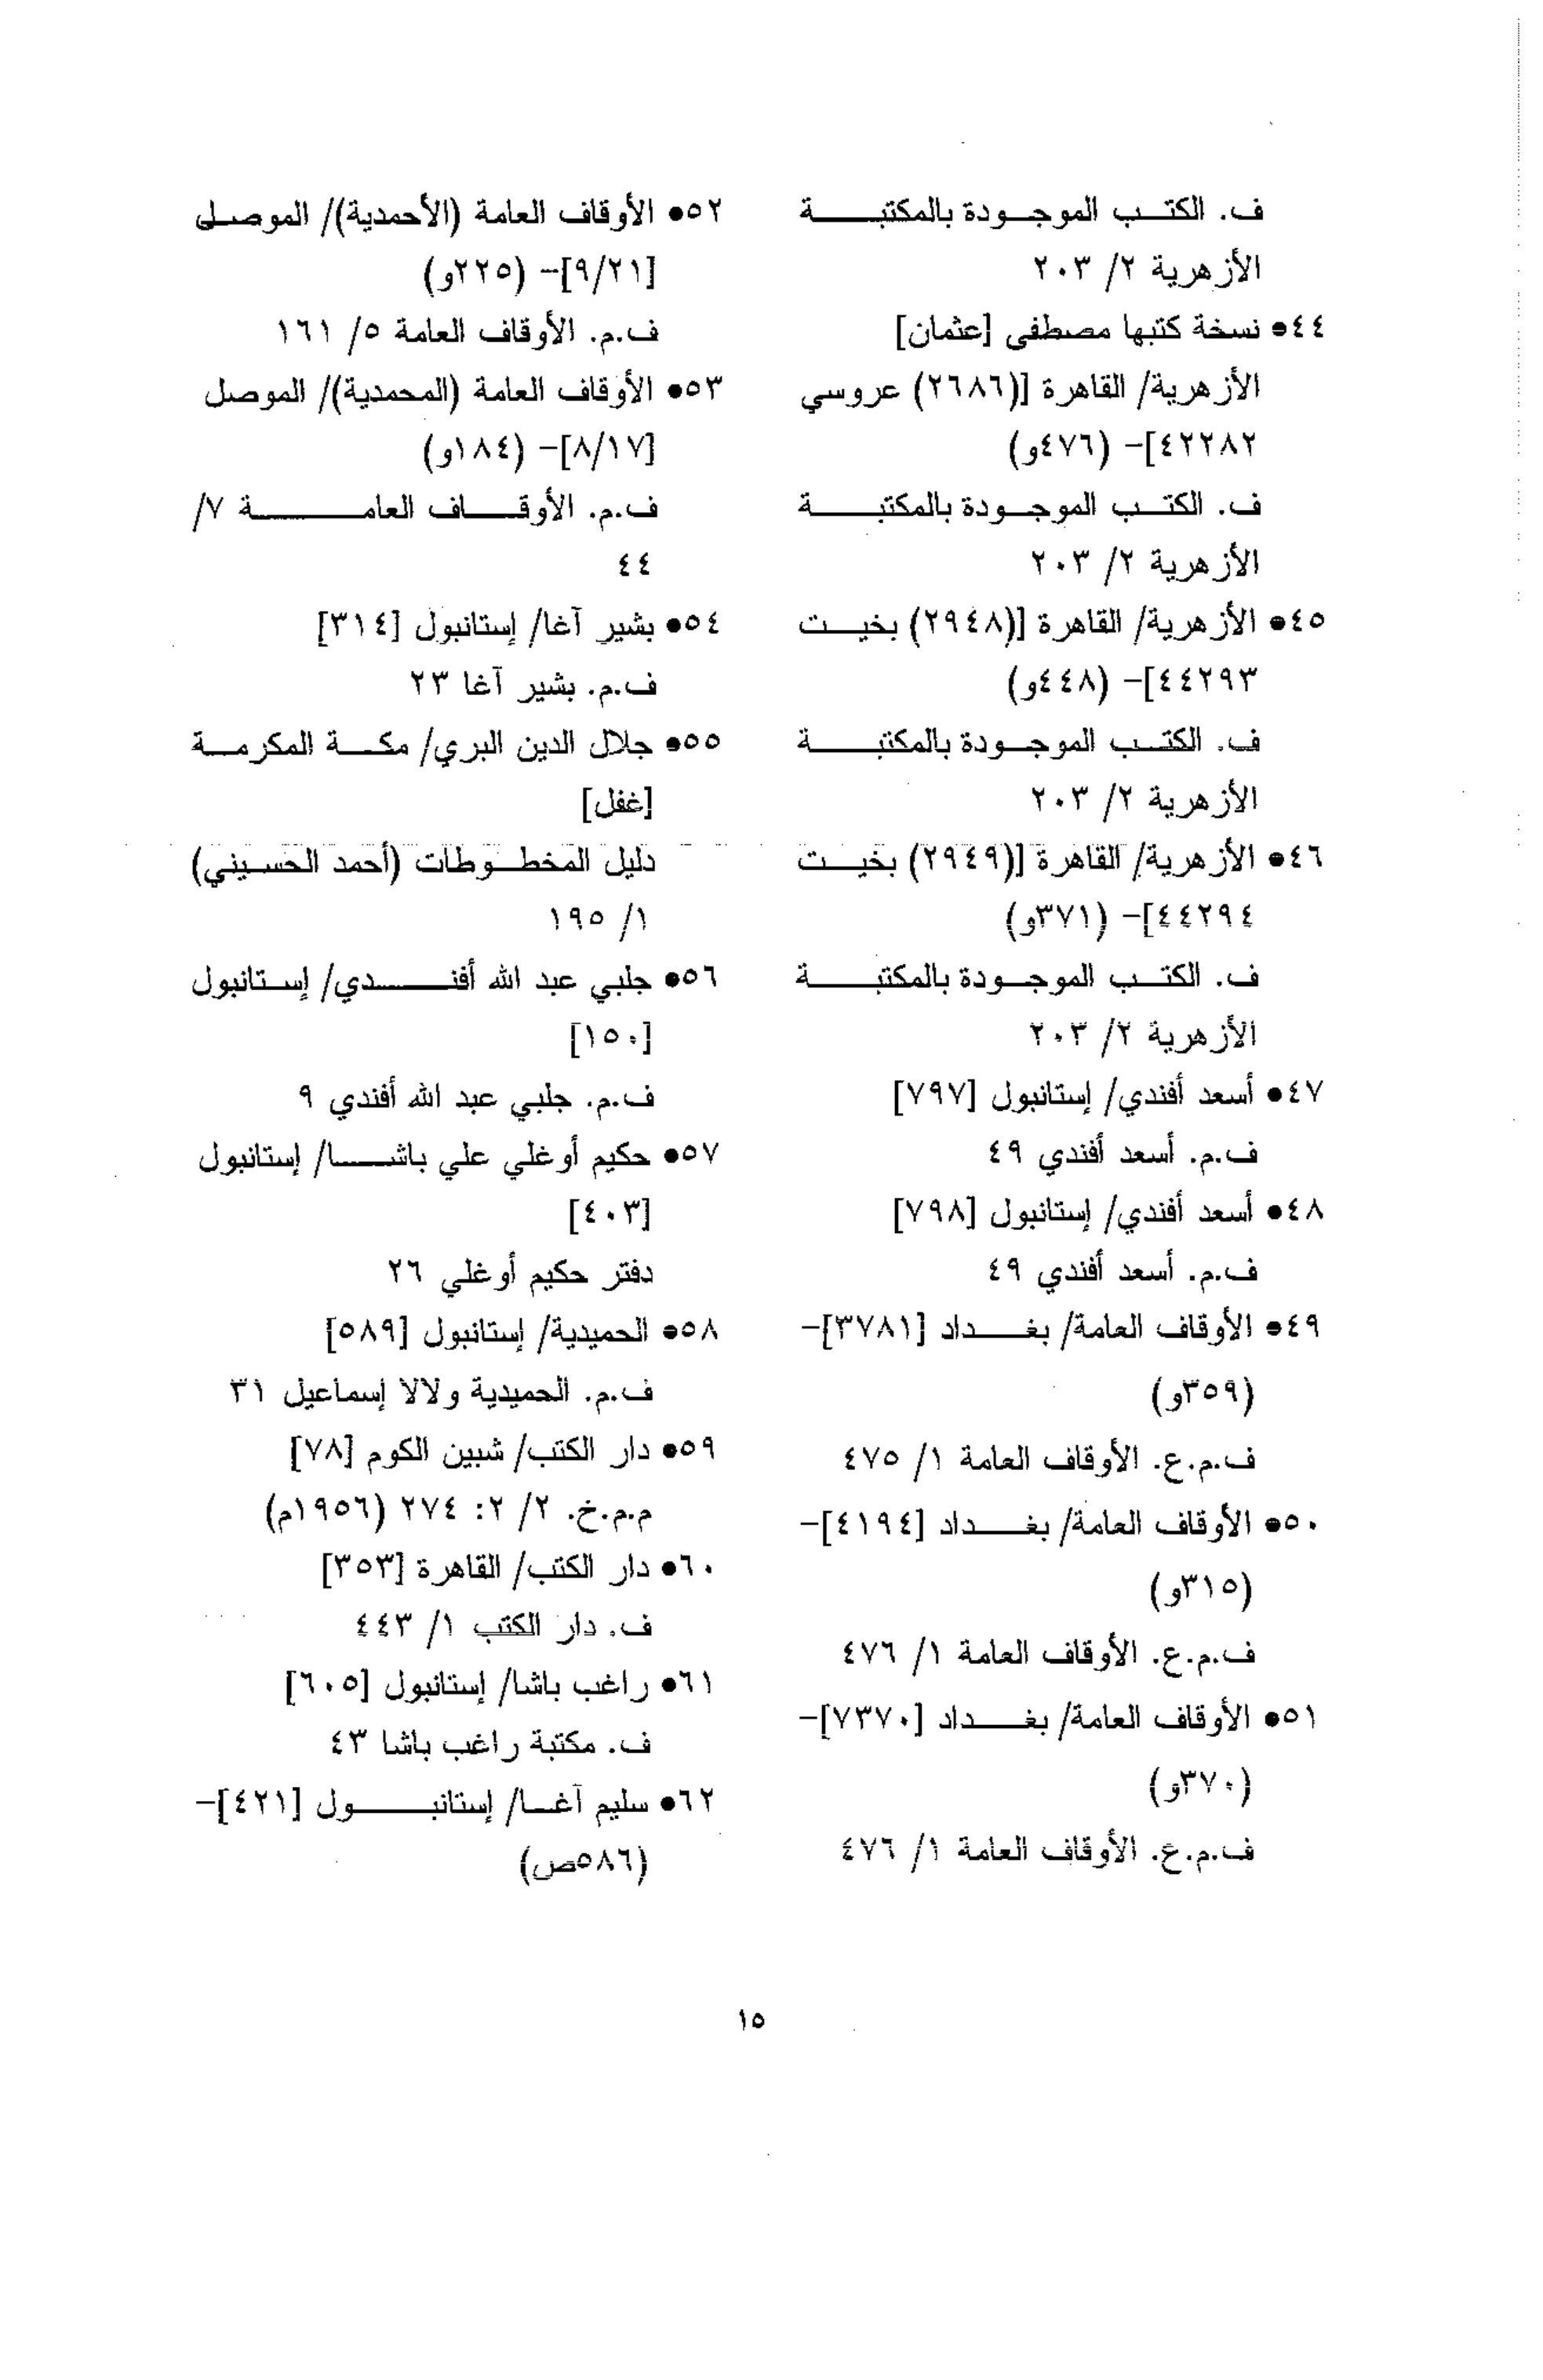 ف. الكتب الموجودة بالمكتبة
الأزهرية ٢/ ٢٠٣
٤٤● نسخة كتبها مصطفى [عثمان]
الأزهرية/ القاهرة [(٢٦٨٦) عروسي
٤٢٢٨٢]– (٤٧٦و)
ف. الكتب الموجودة بالمكتبة
الأزهرية ٢/ ٢٠٣
٤٥● الأزهرية/ القاهرة [(٢٩٤٨) بخيت
٤٤٢٩٣]– (٤٤٨و)
ف. الكتب الموجودة بالمكتبة
الأزهرية ٢/ ٢٠٣
٤٦● الأزهرية/ القاهرة [(٢٩٤٩) بخيت
٤٤٢٩٤]– (٣٧١و)
ف. الكتب الموجودة بالمكتبة
الأزهرية ٢/ ٢٠٣
٤٧● أسعد أفندي/ إستانبول [٧٩٧]
ف.م. أسعد أفندي ٤٩
٤٨● أسعد أفندي/ إستانبول [٧٩٨]
ف.م. أسعد أفندي ٤٩
٤٩● الأوقاف العامة/ بغداد [٣٧٨١]–
(٣٥٩و)
ف.م.ع. الأوقاف العامة ١/ ٤٧٥
٥٠● الأوقاف العامة/ بغداد [٤١٩٤]–
(٣١٥و)
ف.م.ع. الأوقاف العامة ١/ ٤٧٦
٥١● الأوقاف العامة/ بغداد [٧٣٧٠]–
(٣٧٠و)
ف.م.ع. الأوقاف العامة ١/ ٤٧٦
٥٢● الأوقاف العامة (الأحمدية)/ الموصل
[٩/٢١]– (٢٢٥و)
ف.م. الأوقاف العامة ٥/ ١٦١
٥٣● الأوقاف العامة (المحمدية)/ الموصل
[٨/١٧]– (١٨٤و)
ف.م. الأوقاف العامة ٧/
٤٤
٥٤● بشير آغا/ إستانبول [٣١٤]
ف.م. بشير آغا ٢٣
٥٥● جلال الدين البري/ مكة المكرمة
[غفل]
دليل المخطوطات (أحمد الحسيني)
١/ ١٩٥
٥٦● جلبي عبد الله أفندي/ إستانبول
[١٥٠]
ف.م. جلبي عبد الله أفندي ٩
٥٧● حكيم أوغلي علي باشا/ إستانبول
[٤٠٣]
دفتر حكيم أوغلي ٢٦
٥٨● الحميدية/ إستانبول [٥٨٩]
ف.م. الحميدية ولالا إسماعيل ٣١
٥٩● دار الكتب/ شبين الكوم [٧٨]
م.م.خ. ٢/ ٢: ٢٧٤ (١٩٥٦م)
٦٠● دار الكتب/ القاهرة [٣٥٣]
ف. دار الكتب ١/ ٤٤٣
٦١● راغب باشا/ إستانبول [٦٠٥]
ف. مكتبة راغب باشا ٤٣
٦٢● سليم آغا/ إستانبول [٤٢١]–
(٥٨٦ص)
١٥